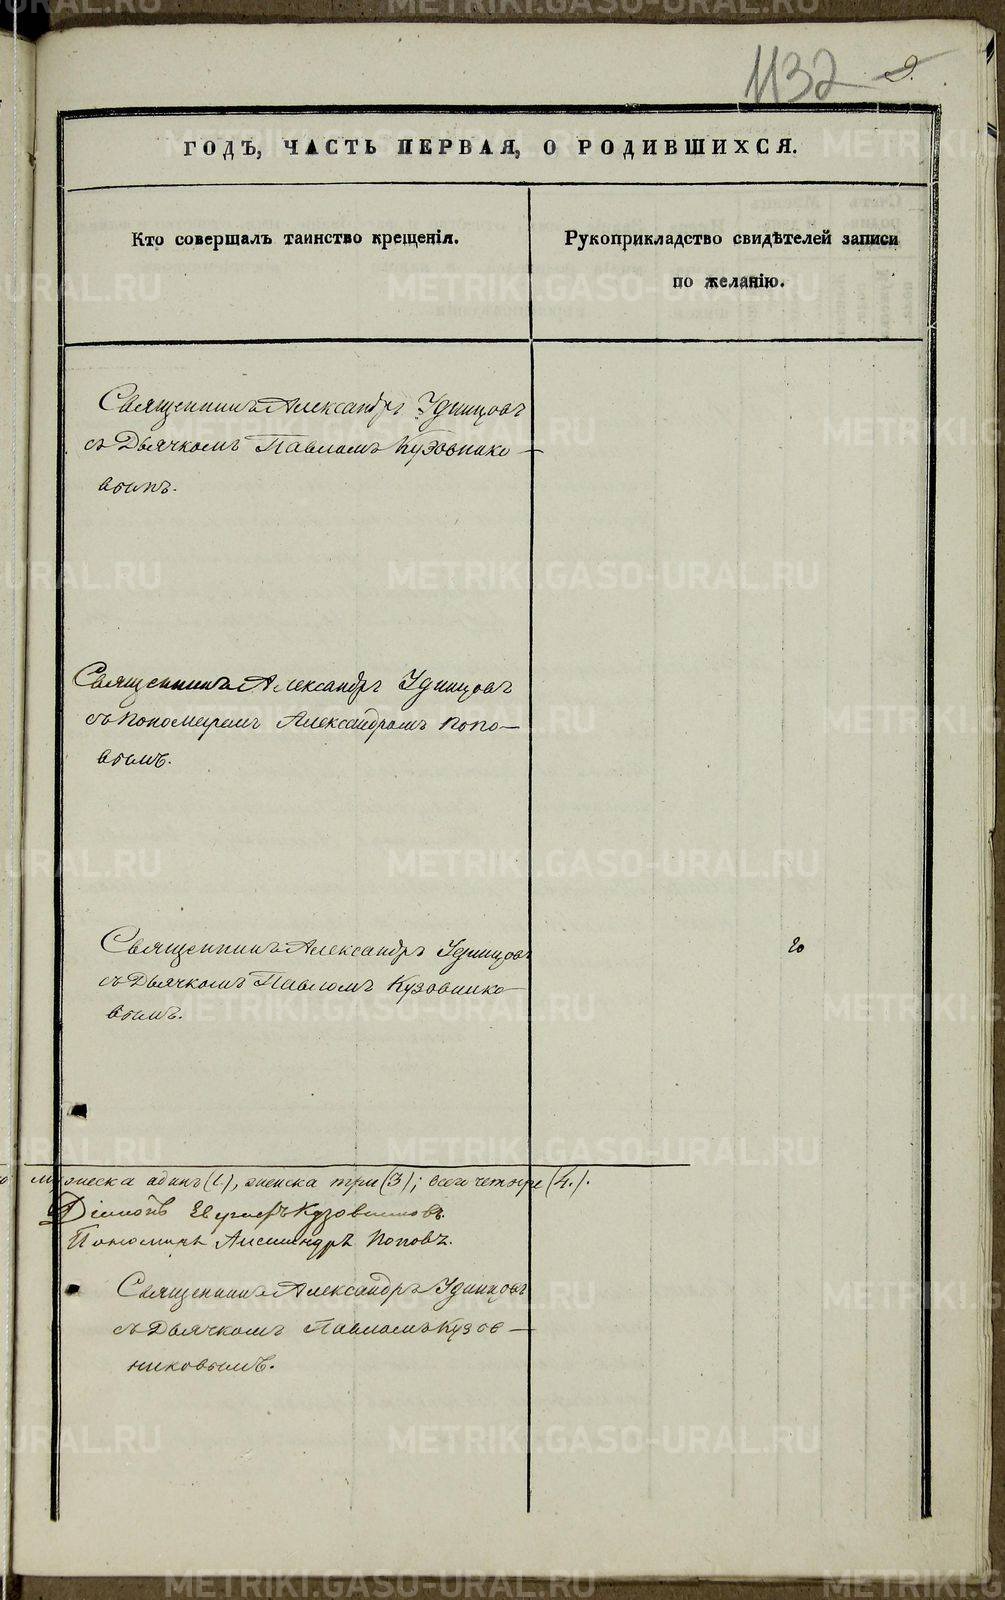 1132 2.
ГОДЪ, ЧАСТЬ ПЕРВАЯ, О РОДИВШИХСЯ.
Кто совершалъ таинство крещенія.
Рукоприкладство свидѣтелей записи
по желанію.
Священникъ Александръ Удинцовъ
съ Дьячкомъ Павломъ Кузовнико-
вымъ.
Священникъ Александръ Удинцовъ
съ пономаремъ Александромъ Попо-
вымъ.
Священникъ Александръ Удинцовъ
съ Дьячкомъ Павломъ Кузовнико-
вымъ.
мужеска адинъ (1), женска три (3); всего четыре (4.).
Кузовниковъ.
Пономарь Александръ Поповъ.
Священникъ Александръ Удинцовъ
съ Дьячкомъ Павломъ Кузов-
никовымъ.
METRIKI.GASO-URAL.RU